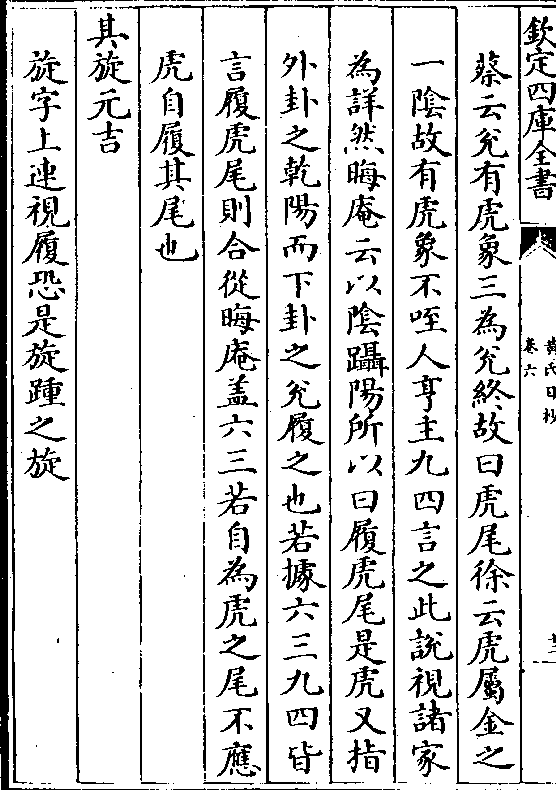 欽定四庫全書
黃氏日抄
卷六
蔡云兊有虎象三為兊終故曰虎尾徐云虎屬金之
一陰故有虎象不咥人亨主九四言之此說視諸家
為詳然晦庵云以陰躡陽所以曰履虎尾是虎又指
外卦之乾陽而下卦之兊履之也若據六三九四皆
言履虎尾則合從晦庵盖六三若自為虎之尾不應
虎自履其尾也
其旋元吉
旋字上連視履恐是旋踵之旋